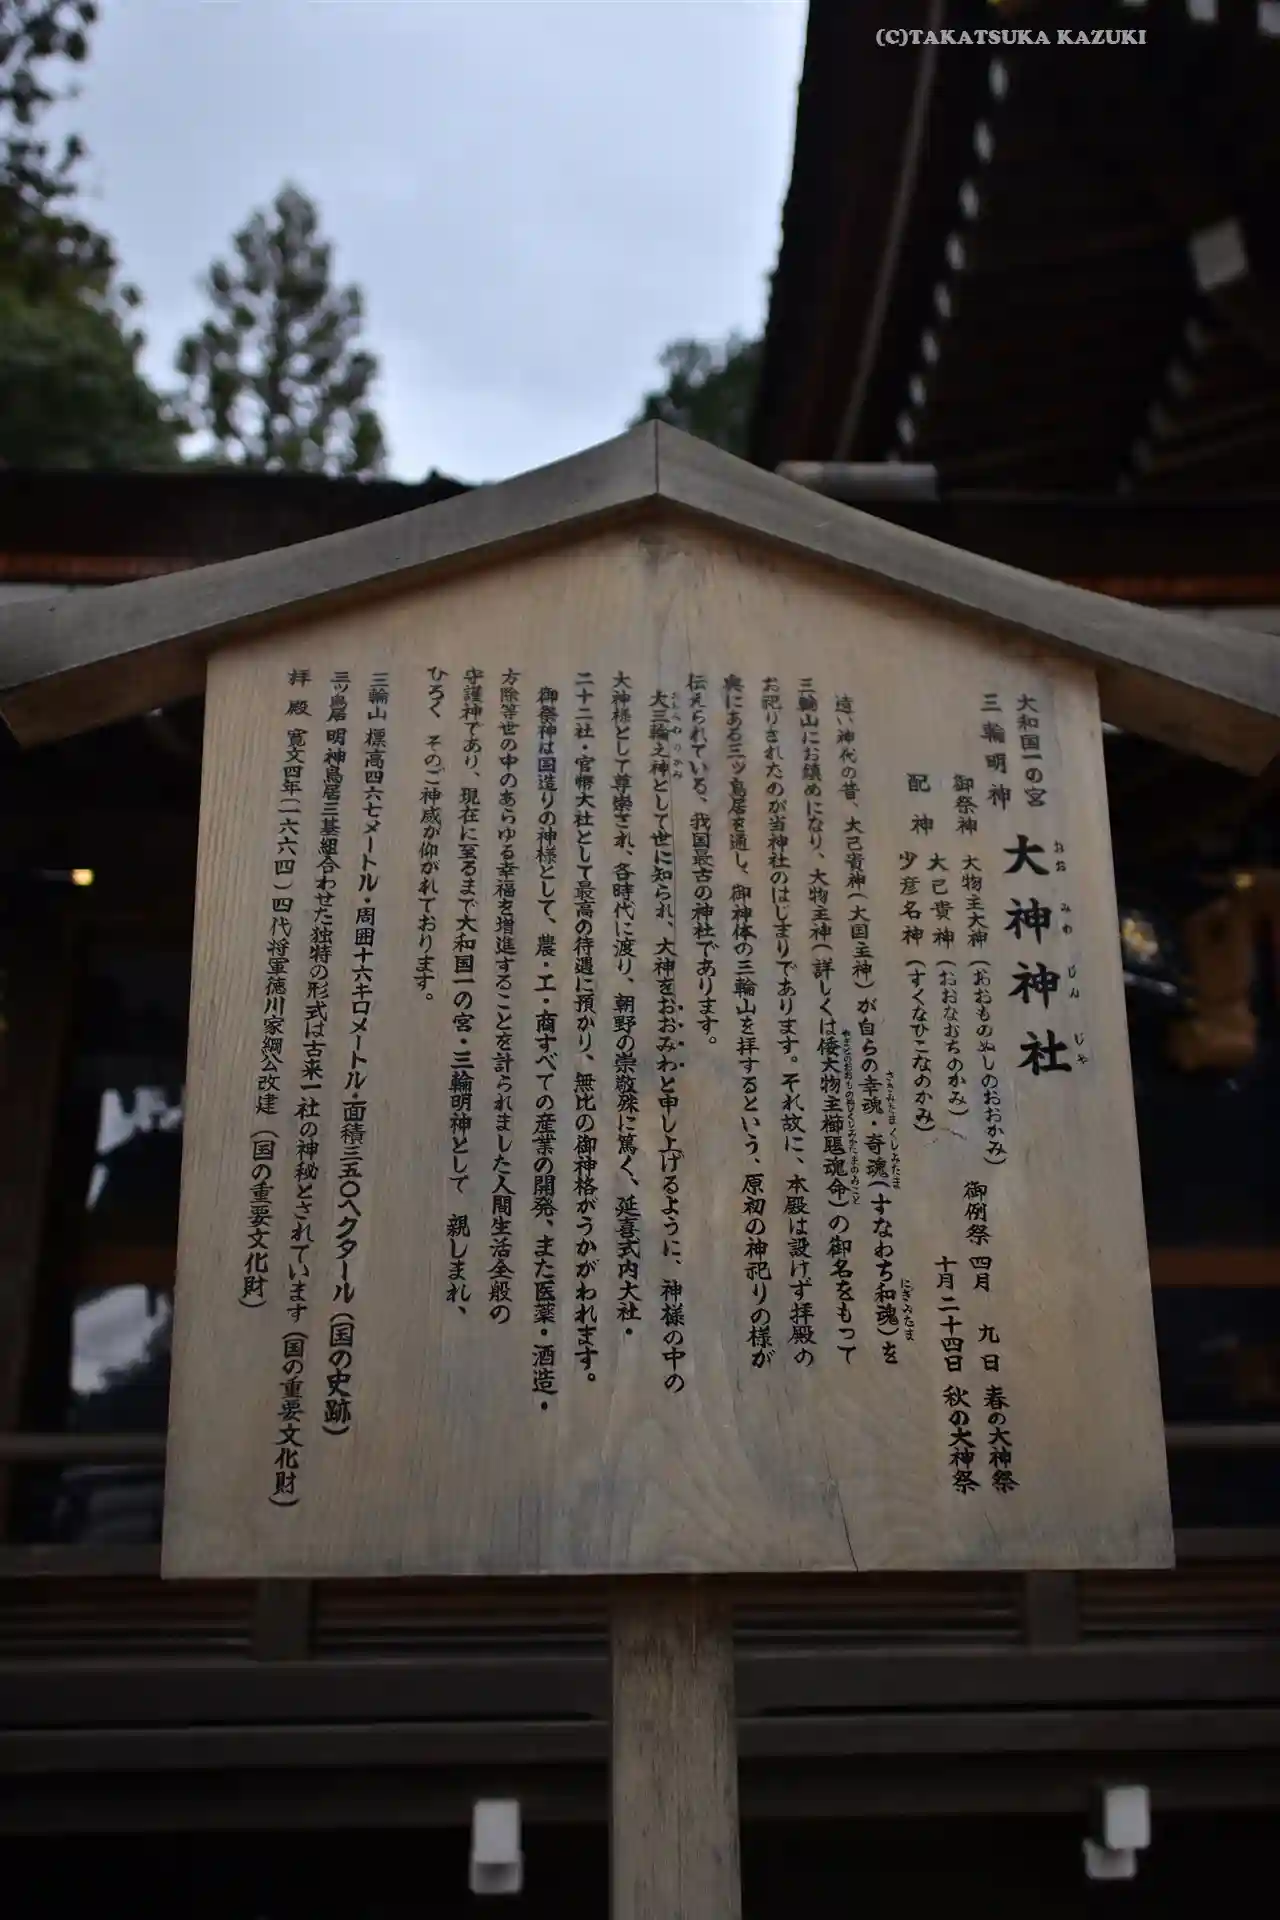 (C)TAKATSUKA KAZUKI
大和国一の宮
三輪明神
大神神社
おお みわ じん じゃ
御祭神 大物主大神(おおものぬしのおおかみ)
大己貴神(おおなむちのかみ)
配神 少彦名神(すくなひこなのかみ)
御例祭 四月 九日 春の大神祭
十月二十四日 秋の大神祭
遠い神代の昔、大己貴神(大国主神)が自らの幸魂・奇魂(すなわち和魂)を
さきみたま くしみたま にぎみたま
三輪山にお鎮めになり、大物主神(詳しくは倭大物主櫛𤭖魂命)の御名をもって
やまとのおおものぬしくしみかたまのみこと
お祀りされたのが当神社のはじまりであります。それ故に、本殿は設けず拝殿の
奥にある三ッ鳥居を通し、御神体の三輪山を拝するという、原初の神祀りの様が
伝えられている、我国最古の神社であります。
大三輪之神として世に知られ、大神をおおみわと申し上げるように、神様の中の
おおみわのかみ
大神様として尊崇され、各時代に渡り、朝野の崇敬殊に篤く、延喜式内大社・
二十二社・官幣大社として最高の待遇に預かり、無比の御神格がうかがわれます。
御祭神は国造りの神様として、農・工・商すべての産業の開発、また医薬・酒造・
方除等世の中のあらゆる幸福を増進することを計られました人間生活全般の
守護神であり、現在に至るまで大和国一の宮・三輪明神として 親しまれ、
ひろく そのご神威が仰がれております。
三輪山 標高四六七メートル・周囲十六キロメートル・面積三五〇ヘクタール(国の史跡)
三ッ鳥居 明神鳥居三基組合わせた独特の形式は古来一社の神秘とされています(国の重要文化財)
拝殿 寛文四年(一六六四)四代将軍徳川家綱公改建(国の重要文化財)